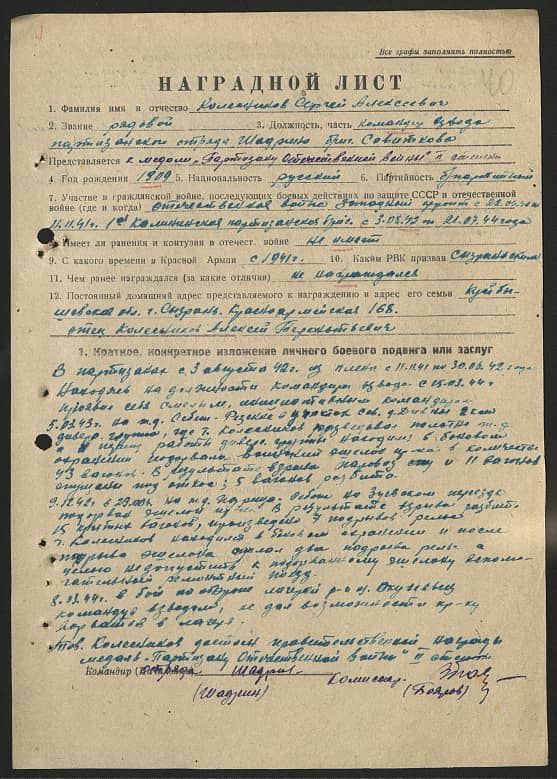 Все графы заполнять полностью
40
НАГРАДНОЙ ЛИСТ
1. Фамилия имя и отчество Колесников Сергей Алексеевич
2. Звание рядовой 3. Должность, часть командир взвода
партизанского отряда Шадрино бриг.
Представляется к медали „Партизану Отечественной войны" II степени
4. Год рождения 1909 5. Национальность русский 6. Партийность б/партийный
7. Участие в гражданской войне, последующих боевых действиях по защите СССР и отечественной
войне (где и когда) отечественная война Западный фронт с
11.11.41г. 1ая Калининская партизанская бриг. с 3.08.42 по 21.07.44 года
8. Имеет ли ранения и контузии в отечест. войне не имеет
9. С какого времени в Красной Армии с 1941г. 10. Каким РВК призван Сызранским
11. Чем ранее награждался (за какие отличия) не награждался
12. Постоянный домашний адрес представляемого к награждению и адрес его семьи Куйбы-
шевская обл. г. Сызрань, Красноармейская 165.
отец Колесников Алексей Терентьевич
1. Краткое, конкретное изложение личного боевого подвига или заслуг
В партизанах с 3 августа 42г. из плена с 11.11.41 по 30.06.42 года
Находясь на должности командира взвода с 15.03.44г
проявил себя смелым, инициативным командиром
5.03.43г. на ж.д. Себеж-
группы, где т. Колесников полотно ж.д.
в период работы диверс. группы находился в боковом
охранении подорвали воинский эшелон пр-ка в количестве
43 вагонов. В результате взрыва паровоз и 11 вагонов
спущены под откос, 5 вагонов разбито.
9.12.42 в на ж.д. Идрица-Себеж на переезде
подорван эшелон пр-ка. В результате взрыва разбито
15 крытых вагонов, произведено 4 подрывов рельс
т. Колесников находился в боковом охранении и после
подрыва эшелона сделал два подрыва рельс а
чтобы недопустить к подорванному эшелону вспомо-
гательный ремонтный поезд.
8.03.44г в бой по обороне лагерей р-н д. Окуневец
командуя взводом, не дал возможности пр-ку
ворваться в лагерь.
Тов. Колесников достоин правительственной награды
медаль „Партизану Отечественной войны" II степени
Командир отряда Шадрин Комиссар
(Шадрин) (Бояров)